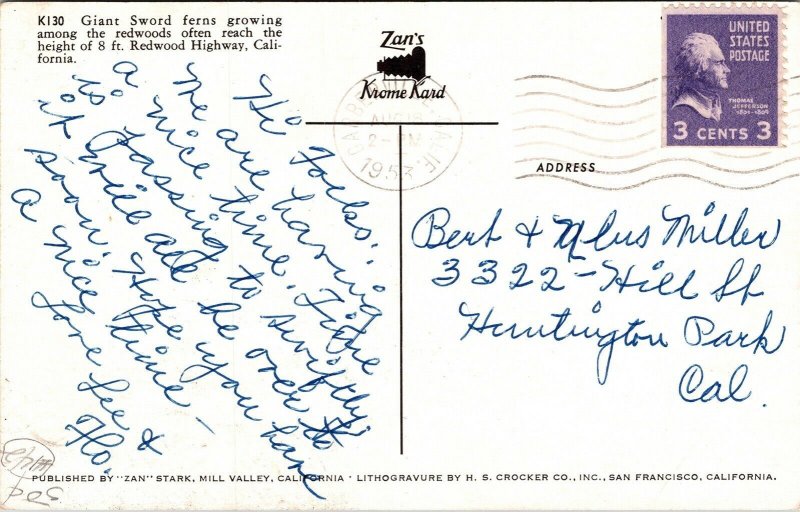 K130 Giant Sword ferns growing
among the redwoods often reach the
height of 8 ft. Redwood Highway, Cali-
fornia.
Zan's
Krome Kard
UNITED
STATES
POSTAGE
THOMAS
JEFFERSON
1801-1809
3 CENTS 3
AUG
1953
CALIF
ADDRESS
Hi Folks.
We are having
a nice time. Time
to passing to swiftly.
it will all be over to
soon. Hope you have
a nice time -
Love Lee &
Flo.
Bert & Mrs Miller
3322 - Hill St
Huntington Park
Cal.
PUBLISHED BY "ZAN" STARK, MILL VALLEY, CALIFORNIA · LITHOGRAVURE BY H. S. CROCKER CO., INC., SAN FRANCISCO, CALIFORNIA.